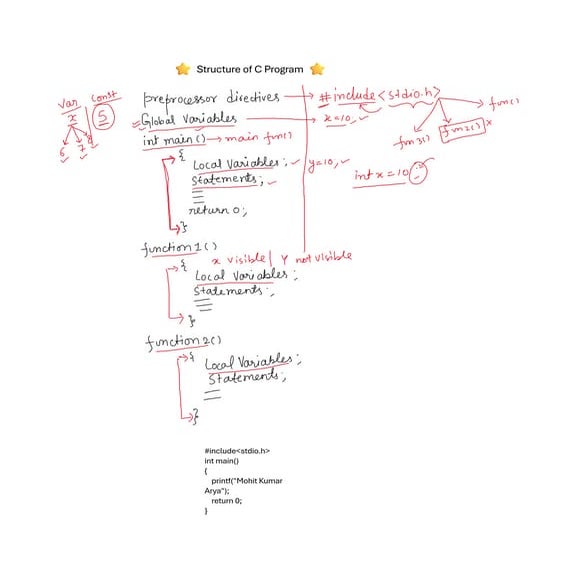 Structure of C Program
Var
Const
x
5
6 7 8
preprocessor directives → #include<stdio.h>
fun()
fun2() x
fun3()
Global Variables → x=10,
int main() → main func)
{
Local Variables; y=10,
Statements;
int x = 10;
return 0;
}
function1()
x visible | Y not visible
{
Local Variables;
Statements;
}
function2()
{
Local Variables;
Statements;
}
#include<stdio.h>
int main()
{
printf("Mohit Kumar
Arya");
return 0;
}